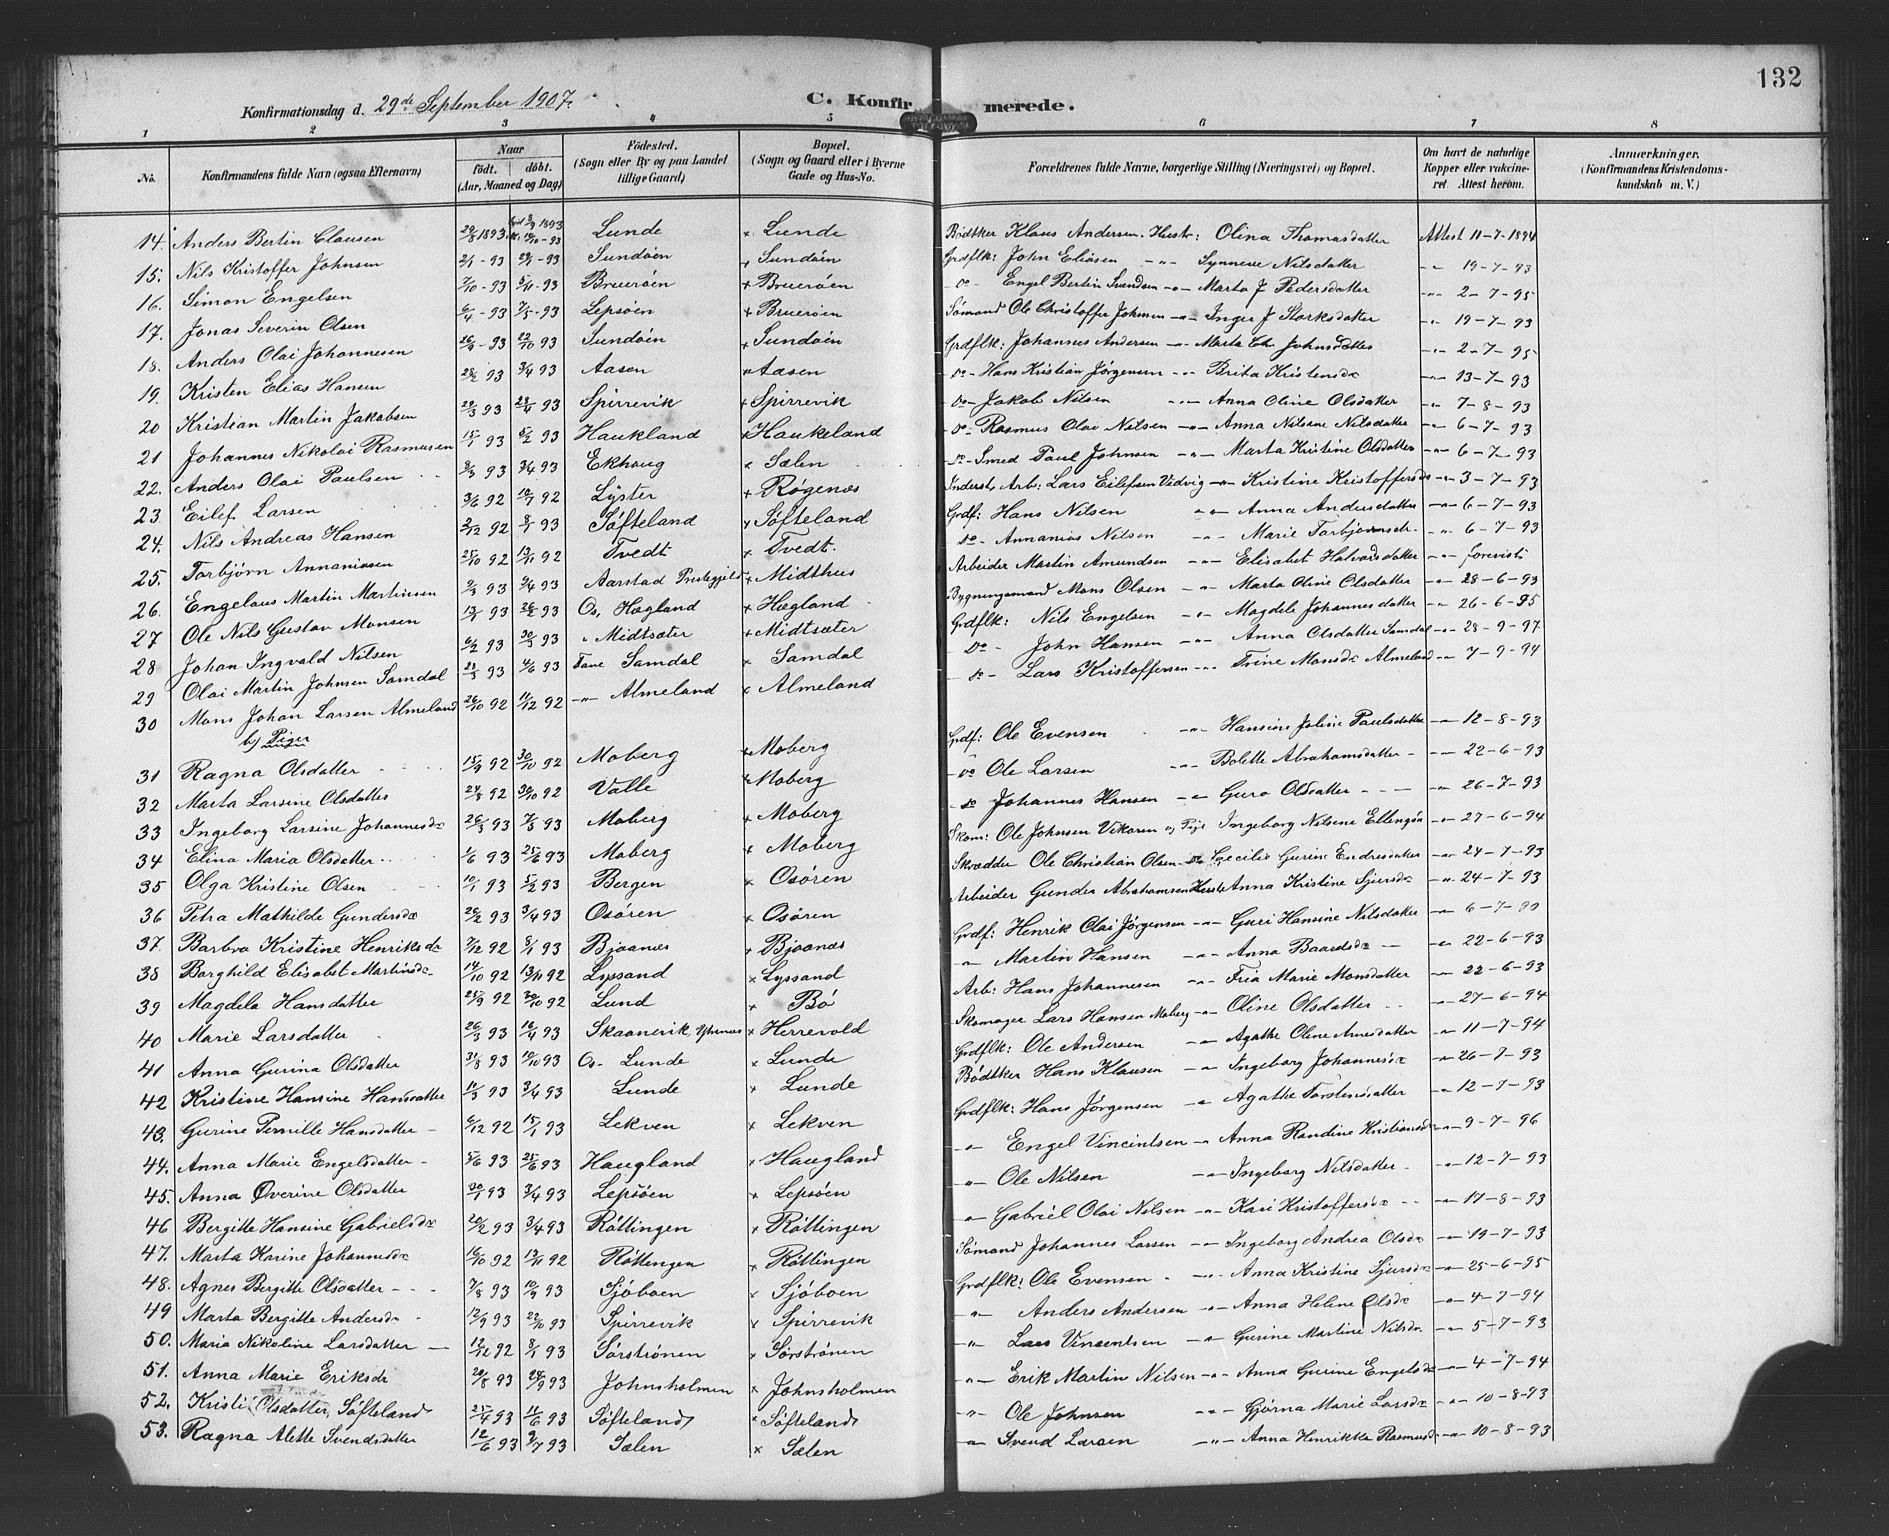 132
Konfirmationsdag d. 29de September 1907.
C. Konfirmerede.
1 2 3 4 5 6 7 8
No. Konfirmandens fulde Navn (ogsaa Efternavn) Naar født. døbt. (Aar, Maaned og Dag) Fødested. (Sogn eller By og paa Landet tillige Gaard) Bopæl. (Sogn og Gaard eller i Byerne Gade og Hus-No. Forældrenes fulde Navne, borgerlige Stilling (Næringsvei) og Bopæl. Om havt de naturlige Kopper eller vaccineret. Attest herom. Anmærkninger. (Konfirmandens Kristendomskundskab m. V.)
14. Anders Bertin Clausen 29/8 1893 3/9 1893 Lunde × Lunde Bødtker Klaus Andersen. Hustr: Olina Thomasdatter Attest 11-7-1894
15. Nils Kristoffer Johnsen 2/1 - 93 29/1 - 93 Sundøen × Sundøen Grdflk: John Eliasen -"- Synneve Nilsdatter -"- 19-7-93
16. Simon Engelsen 7/10 - 93 5/11 - 93 Bruerøen × Bruerøen -do- Engel Bertin Svendsen -"- Marta J Pedersdatter -"- 2-7-95
17. Jonas Severin Olsen 6/4 - 93 7/5 - 93 Lepsøen × Bruerøen Sømand Ole Christoffer Johnsen -"- Inger J Storksdatter -"- 19-7-93
18. Anders Olai Johannesen 26/9 - 93 22/10 93 Sundøen × Sundøen Grdflk: Johannes Andersen -"- Marta Chr. Johnsdatter -"- 2-7-95
19. Kristen Elias Hansen 28/2 93 3/4 93 Aasen × Aasen do- Hans Kristian Jørgensen -"- Brita Kristensdr -"- 13-7-93
20 Kristian Martin Jakobsen 29/3 93 23/4 93 Spirrevik × Spirrevik do- Jakob Nilsen -"- Anna Oline Olsdatter -"- 7-8-93
21 Johannes Nikolai Rasmusen 15/1 93 5/2 93 Haukland × Haukeland -do- Rasmus Olai Nilsen -"- Anna Nilsine Nilsdatter -"- 6-7-93
22. Anders Olai Paulsen 9/3 93 3/4 93 Ekhaug × Sælen -do- Smed Paul Johnsen -"- Marta Kristine Olsdatter -"- 6-7-93
23. Eilef Larsen 3/6 92 10/7 92 Lyster × Røgenæs Inderst, Arb: Lars Eilefsen Vidvig -"- Kristine Kristoffersdr -"- 3-7-93
24. Nils Andreas Hansen 2/12 92 8/1 93 Søfteland × Søfteland Grdf: Hans Nilsen -"- Anna Andersdatter -"- 6-7-93
25. Torbjørn Annaniassen 25/10 92 13/11 92 Tvedt × Tvedt. -do- Annanias Nilsen -"- Marie Torbjørnsdr. -"- 6-7-93
26. Engelaus Martin Martinsen 9/3 93 3/4 93 Aarstad Prestegjeld × Midthus Arbeider Martin Amundsen -"- Elisabet Halvorsdatter -"- forevist
27 Ole Nils Gustav Monsen 13/1 93 26/2 93 Os, Hægland × Hægland Bygningsmand Mons Olsen -"- Marta Oline Olsdatter -"- 28-6-93
28 Johan Ingvald Nilsen 6/2 93 30/3 93 " Midtsæter × Midtsæter Grdflk: Nils Engelsen -"- Magdele Johannesdatter -"- 26-6-95
29 Olai Martin Johnsen Samdal 23/3 93 4/6 93 Fane Samdal × Samdal -do- John Hansen -"- Anna Olsdatter Samdal -"- 28-9-97
30 Mons Johan Larsen Almeland 26/10 92 11/12 92 -"- Almeland × Almeland do- Lars Kristoffersen -"- Trine Monsdr Almeland -"- 7-9-94
b) Piger
31 Ragna Olsdatter 15/9 92 30/10 92 Moberg × Moberg Grdf: Ole Evensen -"- Hansine Joline Paulsdatter -"- 12-8-93
32 Marta Larsine Olsdatter 24/8 92 30/10 92 Valle × Moberg -do Ole Larsen -"- Bolette Abrahamsdatter -"- 22-6-93
33 Ingeborg Larsine Johannesdr 26/3 93 7/5 93 Moberg × Moberg do Johannes Hansen -"- Guro Olsdatter -"- 26-7-93
34 Elina Maria Olsdatter 1/6 93 25/6 93 Moberg × Moberg Skom: Ole Johnsen Vikoren og Pige Ingeborg Nilsine Ellingsdr -"- 27-6-94
35 Olga Kristine Olsen 10/1 93 5/2 93 Bergen × Osøren Skrædder Ole Christian Olsen do Cecilie Gurine Endresdatter -"- 24-7-93
36 Petra Mathilde Gundersdr 26/2 93 3/4 93 Osøren × Osøren Arbeider Gunder Abrahamsen Hustr Anna Kristine Sjursdr -"- 24-7-93
37. Barbra Kristine Henriksdr 7/12 92 8/1 93 Bjøanæs × Bjøanæs Grdf: Henrik Olai Jørgensen -"- Guri Hansine Nilsdatter -"- 6-7-90
38 Borghild Elisabet Martinsdr 14/10 92 13/11 92 Lyssand × Lyssand -"- Martin Hansen -"- Anna Baardsdr -"- 22-6-93
39 Magdela Hansdatter 25/9 92 20/10 92 Lund × Bø Arb: Hans Johannesen -"- Fria Marie Monsdatter -"- 22-6-93
40 Marie Larsdatter 26/3 93 16/4 93 Skaanevik, × Herrevold Skomager Lars Hansen Moberg -"- Oline Olsdatter -"- 27-6-94
41 Anna Gurina Olsdatter 31/8 93 10/10 93 Os- Lunde × Lunde Grdflk: Ole Andersen -"- Agathe Oline Arnesdatter -"- 11-7-94
42 Kristine Hansine Hansdatter 11/3 93 3/4 93 Lunde × Lunde Bødtker Hans Klausen -"- Ingeborg Johannesdr -"- 26-7-93
43. Gurine Pernille Hansdatter 6/12 92 15/1 93 Lekven × Lekven Grdflk: Hans Jørgensen -"- Agathe Torstensdatter -"- 12-7-93
44. Anna Marie Engelsdatter 5/6 93 25/6 93 Haugland × Haugland -"- Engel Vincintsen -"- Anna Randine Kristiansdr -"- 9-7-96
45. Anna Øverine Olsdatter 30/1 93 3/4 93 Lepsøen × Lepsøen -"- Ole Nilsen -"- Ingeborg Nilsdatter -"- 12-7-93
46 Bergitte Hansine Gabrielsdr 20/2 93 3/4 93 Røttingen × Røttingen -"- Gabriel Olai Nilsen -"- Kari Kristoffersdr -"- 17-8-93
47. Marta Karine Johannesdr 16/10 92 13/11 92 Røttingen × Røttingen Sømand Johannes Larsen -"- Ingeborg Andrea Olsdr -"- 19-7-93
48. Agnes Bergitte Olsdatter 7/8 93 10/9 93 Sjøboen × Sjøboen Grdflk: Ole Evensen -"- Anna Kristine Sjursdr -"- 25-6-95
49 Marta Bergitte Andersdr 12/9 93 22/10 93 Spirrevik × Spirrevik -"- Anders Andersen -"- Anna Helene Olsdr -"- 4-7-94
50. Maria Nikoline Larsdatter 12/12 92 8/1 93 Sørstrønen × Sørstrønen -"- Lars Vincentsen -"- Gurine Martine Nilsdr. -"- 5-7-93
51. Anna Marie Eriksdr 20/8 93 24/9 93 Johnsholmen × Johnsholmen -"- Erik Martin Nilsen -"- Anna Gurine Engelsdr -"- 4-7-94
52. Kristi Olsdatter, Søfteland 25/4 93 11/6 93 Søfteland × Søfteland -"- Ole Johnsen -"- Gjørna Marie Larsdr -"- 10-8-93
53. Ragna Alette Svendsdatter 12/6 93 2/7 93 Sælen × Sælen -"- Svend Larsen -"- Anna Henrikke Rasmusdr -"- 10-8-93